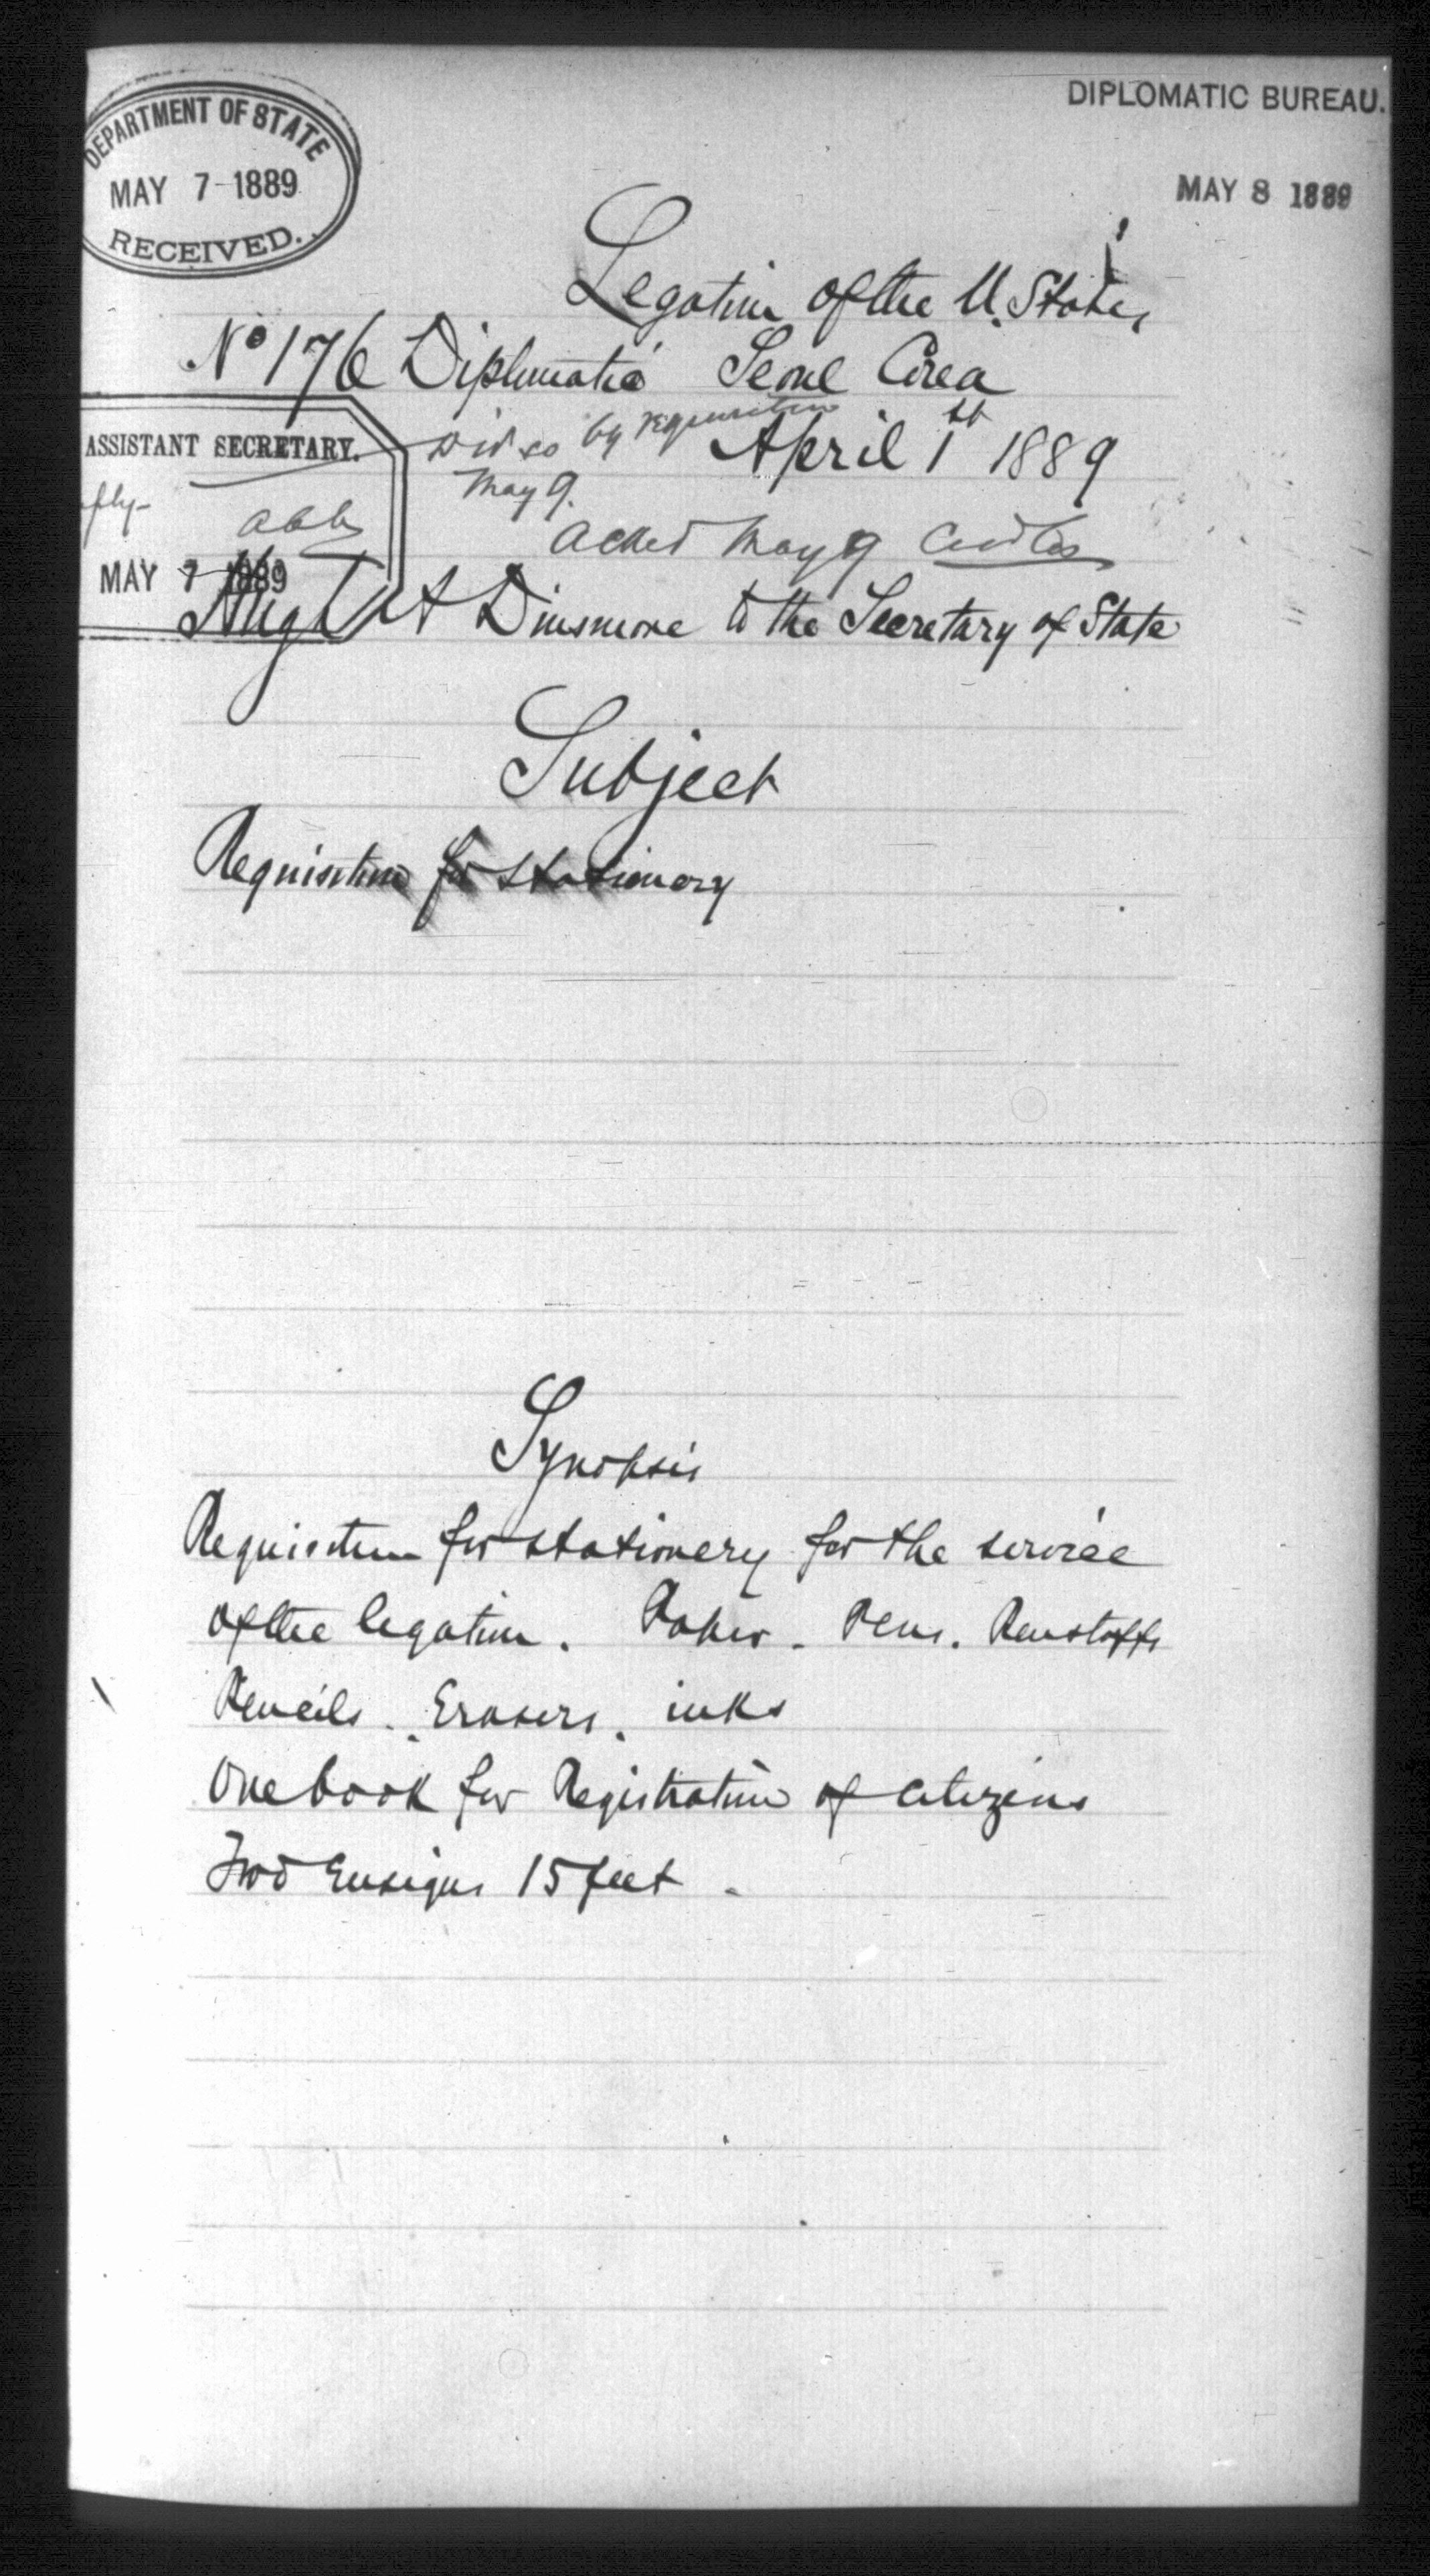 DEPARTMENT OF STATE
MAY 7 1889
RECEIVED.
DIPLOMATIC BUREAU.
MAY 8 1889
Legation of the U. States
No 176 Diplomatic Seoul Corea
by requisition
April 1st 1889
May 9.
ASSISTANT SECRETARY.
MAY 7 1889
Ackd May 9
Hugh A Dinsmore to the Secretary of State
Subject
Requisition for Stationary
Synopsis
Requisition for stationery for the service
of the legation. Paper. Pens. Penstaffs
Pencils. Erasers. inks
One book for Registration of citizens
Two Ensigns 15 feet.